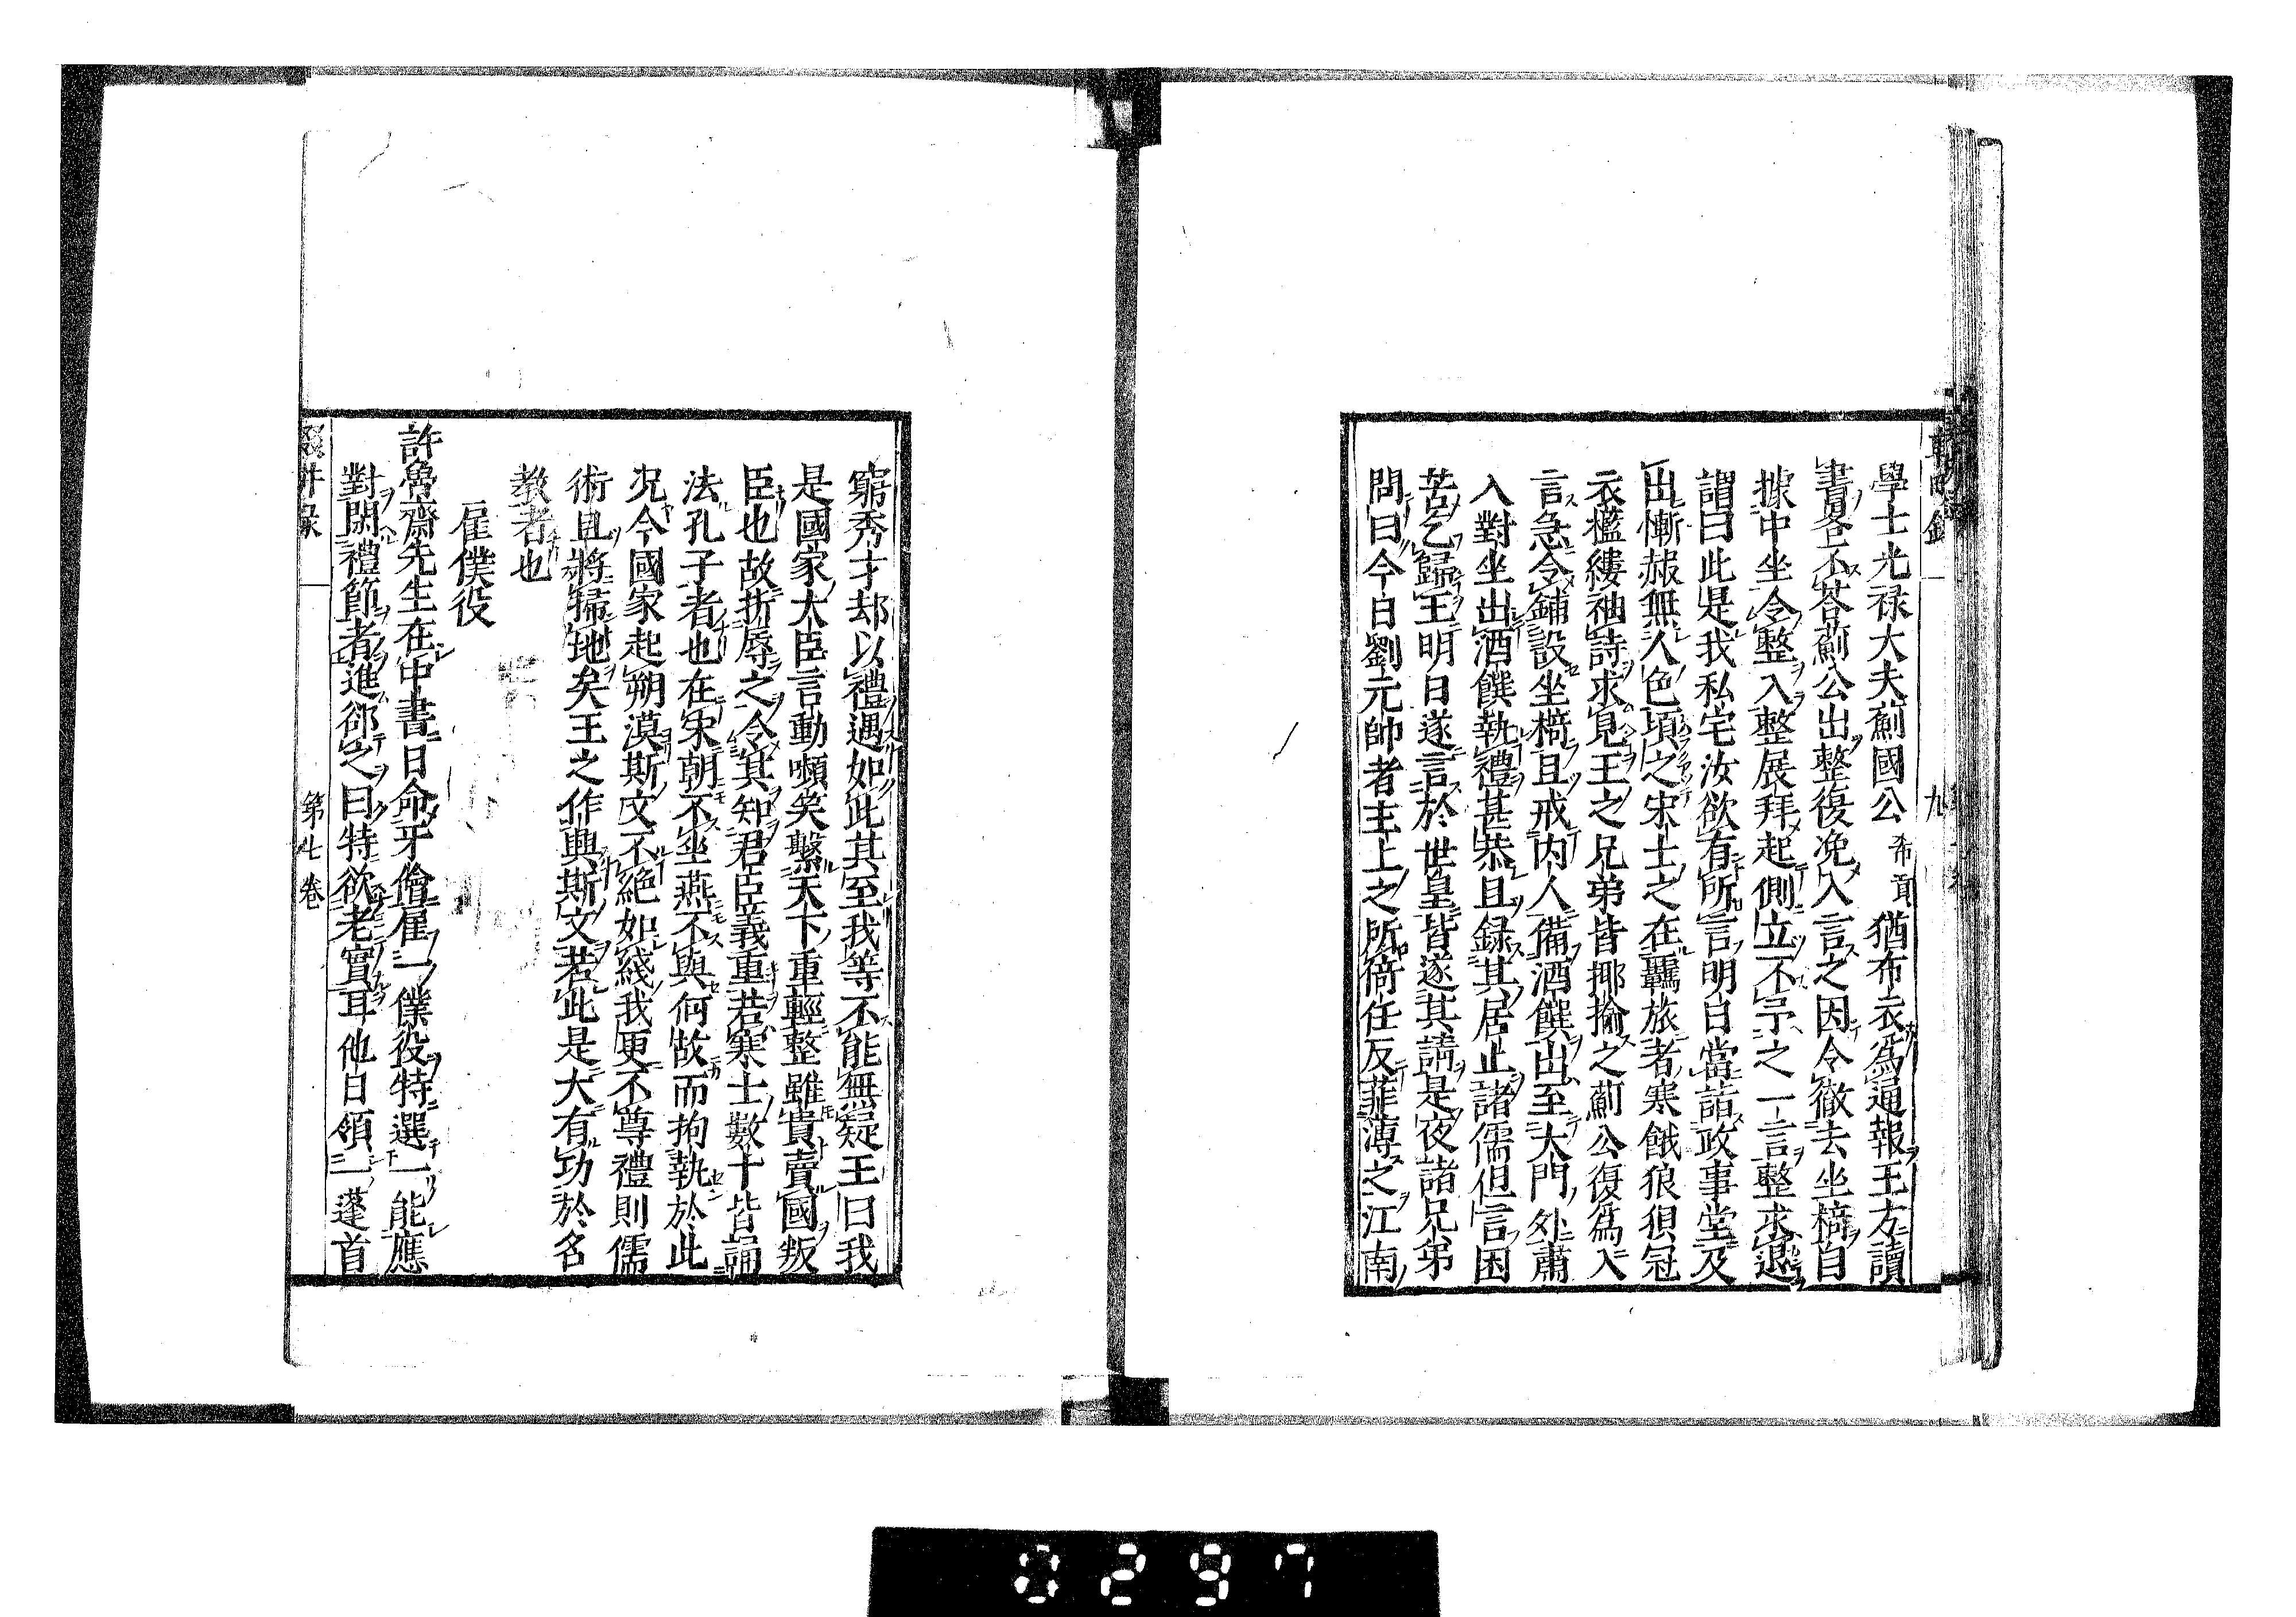 學士光禄大夫薊國公希貢猶布衣爲通報王方讀
書畧不答薊公出整復浼入言之因令徹去坐椅自
據中坐令整入整展拜起側立不予之一言整求退
謂曰此是我私宅汝欲有所言明日當詣政事堂及
出慚赧無人色頃之宋士之在羈旅者寒餓狼狽冠
衣襤縷袖詩求見王之兄弟皆揶揄之薊公復爲入
言急令鋪設坐椅且戒内人備酒饌出至大門外肅
入對坐出酒饌執禮甚恭且録其居止諸儒但言困
苦乞歸王明日遂言於世皇皆遂其請是夜諸兄弟
問曰今日劉元帥者主上之所倚任反菲薄之江南
窮秀才却以禮遇如此其至我等不能無疑王曰我
是國家大臣言動嚬笑繫天下重輕整雖貴賣國叛
臣也故折辱之令其知君臣義重若寒士數十皆誦
法孔子者也在宋朝不坐燕不與何故而拘執於此
况今國家起朔漠斯文不絕如綫我更不尊禮則儒
術且將掃地矣王之作興斯文若此是大有功於名
教者也
雇僕役
許魯齋先生在中書日命牙儈雇一僕役特選一能應
對閑禮節者進卻之曰特欲老實耳他日領一蓬首
第七卷
九
0297